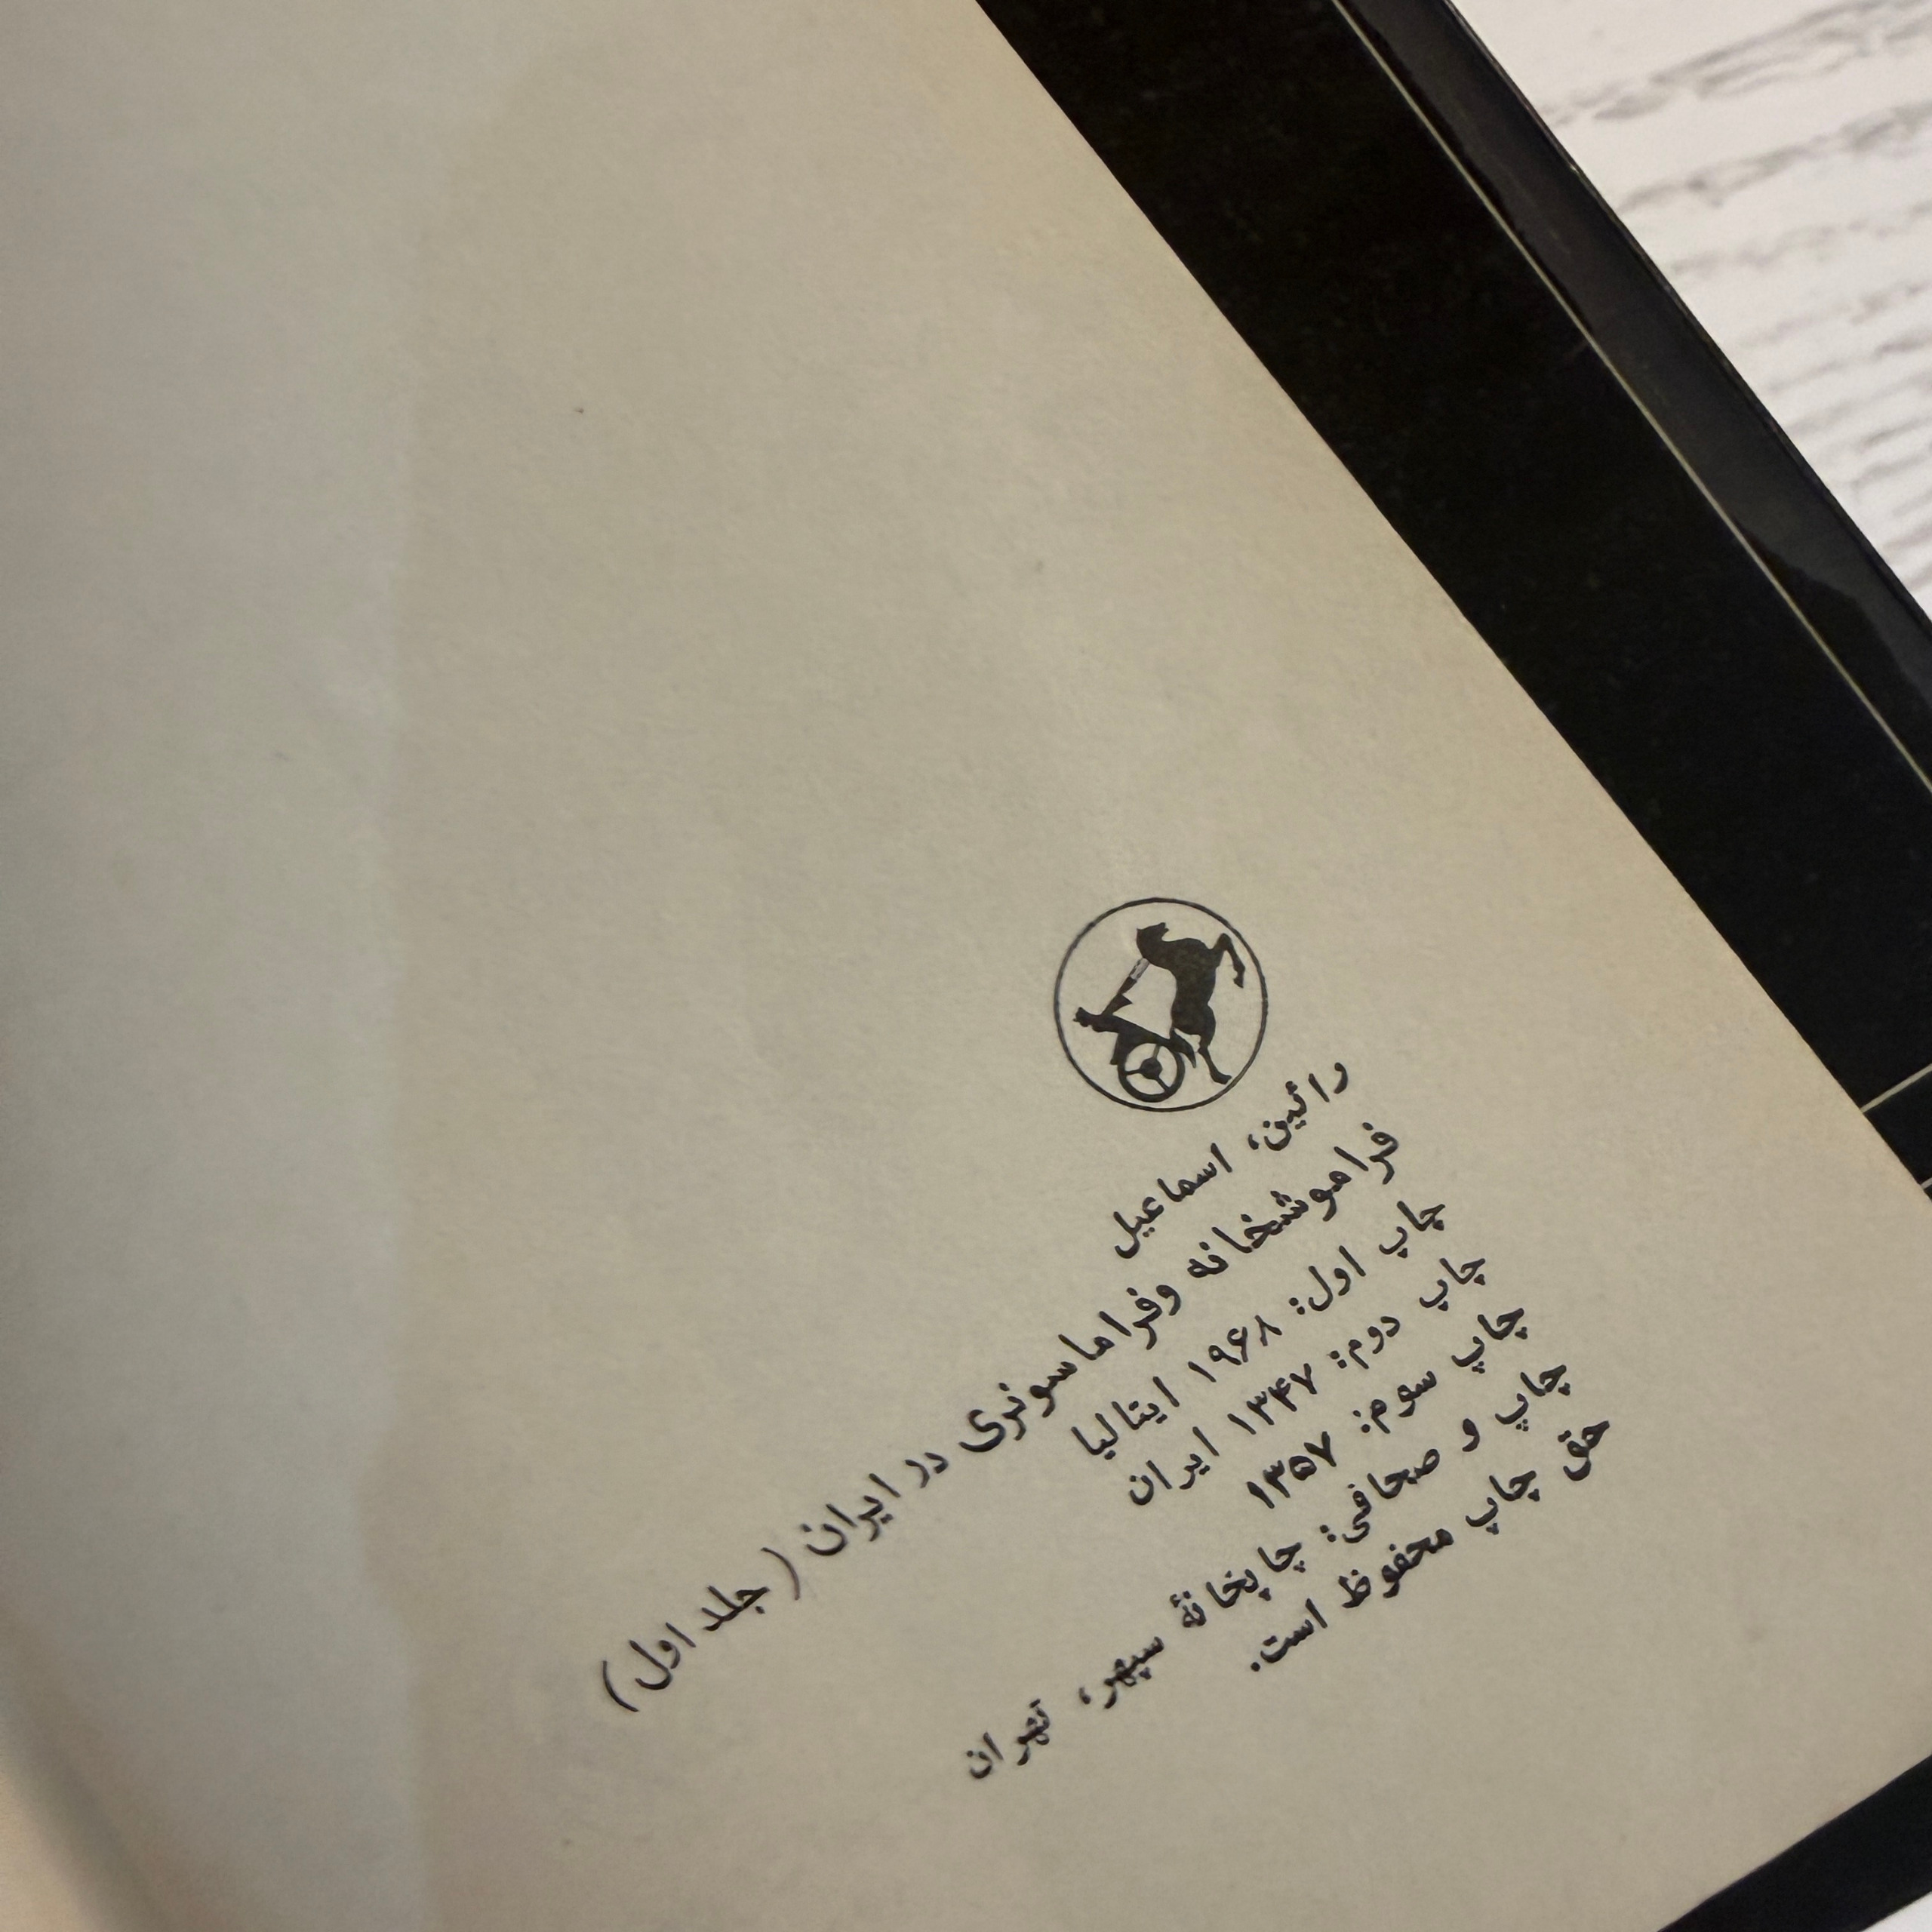 رائین، اسماعیل
فراموشخانه وفراماسونری در ایران (جلد اول)
چاپ اول: ۱۹۶۸ ایتالیا
چاپ دوم: ۱۳۴۷ ایران
چاپ سوم: ۱۳۵۷
چاپ و صحافی: چاپخانهٔ سپهر، تهران
حق چاپ محفوظ است.